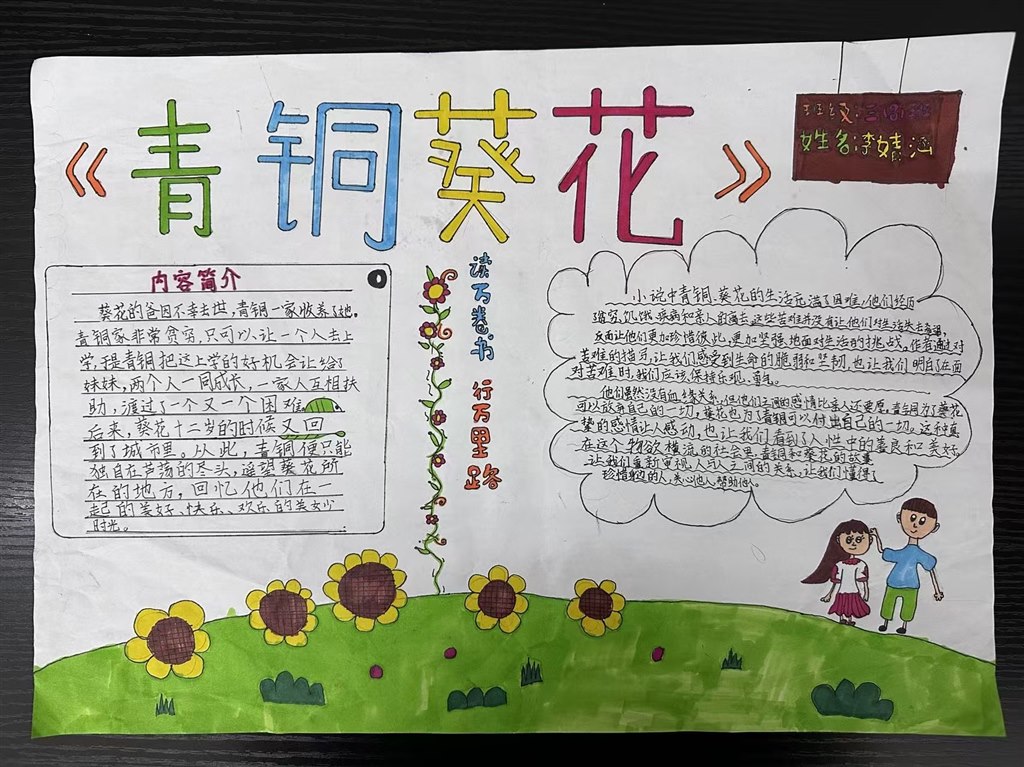 《青铜葵花》
班级:三(8)班
姓名:李婧涵
内容简介
葵花的爸因不幸去世,青铜一家收养了她。
青铜家非常贫穷,只可以让一个人去上
学,于是青铜把这上学的好机会让给了
妹妹,两个人一同成长,一家人互相扶
助,渡过了一个又一个困难
后来,葵花十二岁的时候又回
到了城市里。从此,青铜便只能
独自在芦荡的尽头,遥望葵花所
在的地方,回忆他们在一
起的美好、快乐、欢乐的美女少
时光。
读万卷书 行万里路
小说中青铜、葵花的生活充满了困难,他们经历
贫穷、饥饿、疾病和亲人的离去,这些苦难并没有让他们对生活失去希望,
反而让他们更加珍惜彼此,更加坚强地面对生活的挑战。作者通过对
苦难的描写,让我们感受到生命的脆弱和坚韧,也让我们明白了在面
对苦难时,我们应该保持乐观、勇气。
他们虽然没有血缘关系,但他们之间的感情比亲人还要厚,青铜为了葵花
可以放弃自己的一切,葵花也为了青铜可以付出自己的一切。这种真
挚的感情让人感动,也让我们看到了人性中的善良和美好,
在这个物欲横流的社会里,青铜和葵花的故事
让我们重新审视人与人之间的关系,让我们懂得了
珍惜身边的人,关心他人,帮助他人。